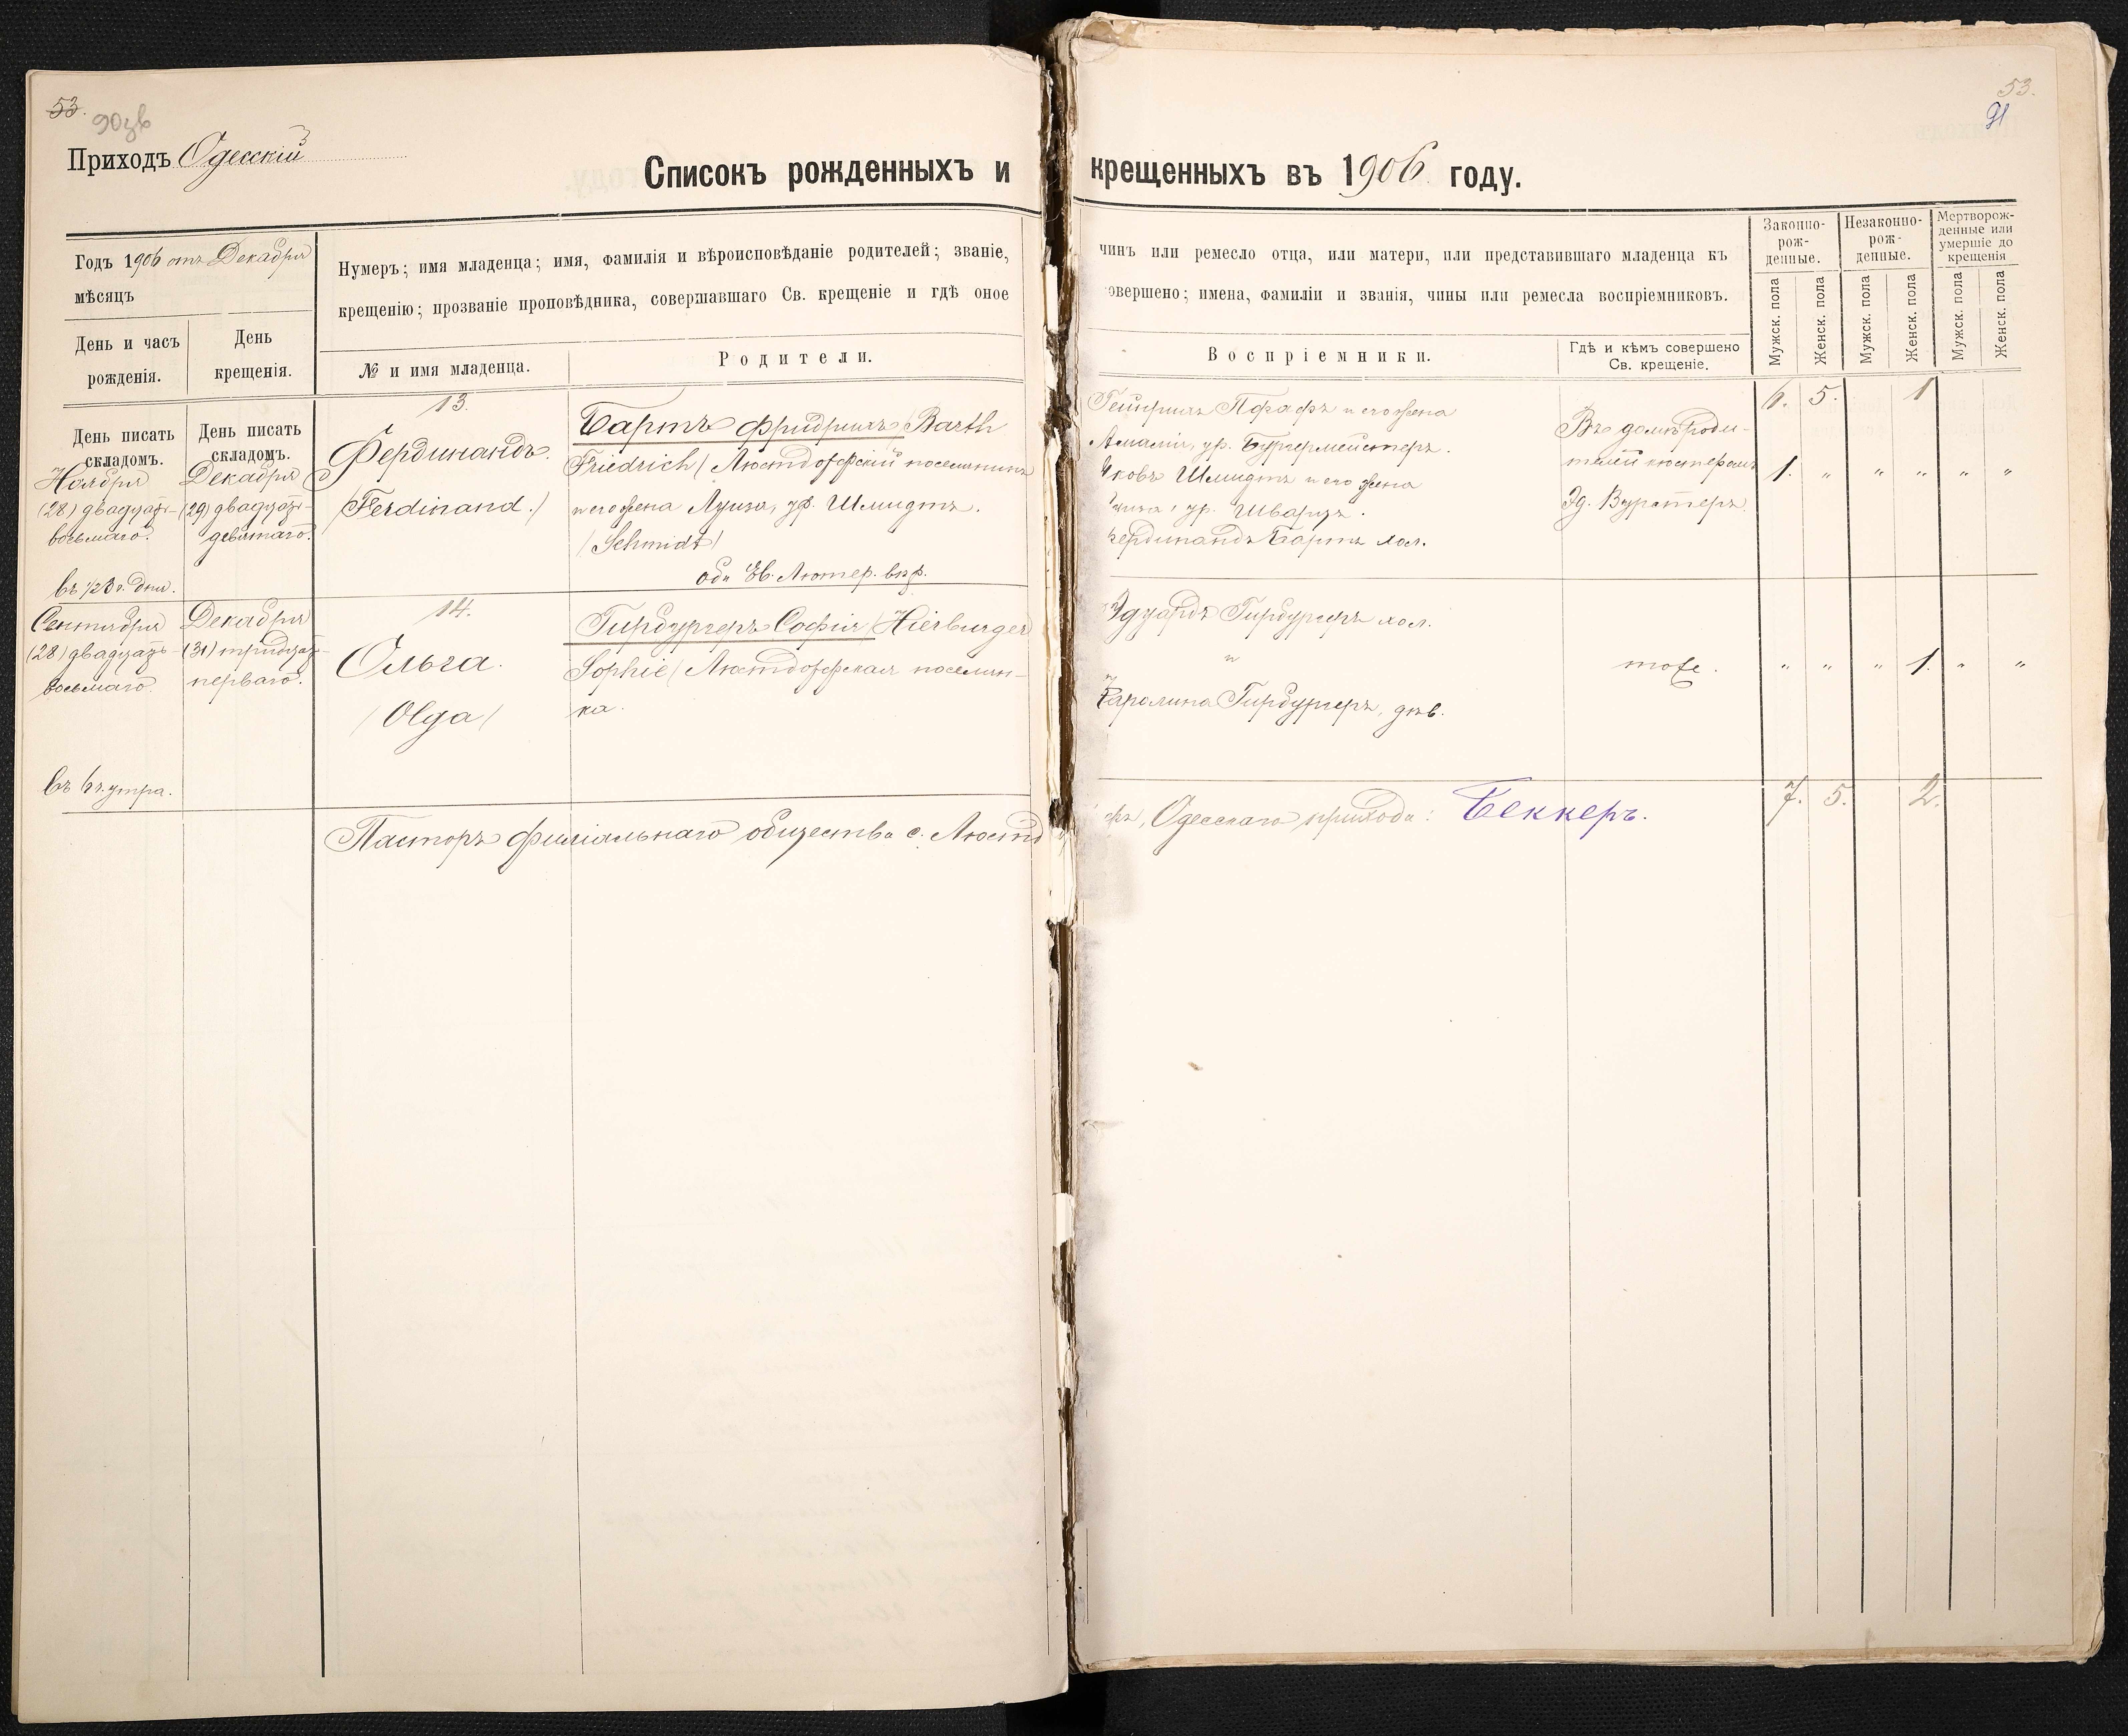 53.
90зв
Приходъ Одесскій
Списокъ рожденныхъ и
Годъ 1906 отъ Декабря
мѣсяцъ
День и часъ
рожденія.
День
крещенія.
Нумеръ; имя младенца; имя, фамилія и вѣроисповѣданіе родителей; званіе,
крещенію; прозваніе проповѣдника, совершавшаго Св. крещеніе и гдѣ оное
№ и имя младенца.
Родители.
День писать
складомъ.
День писать
складомъ.
Ноября
(28) двадцать
восьмаго.
въ 1/2 3 ч. дни.
Декабря
(29) двадцать
девятаго.
13.
Фердинандъ.
/Ferdinand./
Бартъ Фридрихъ /Barth
Friedrich/ Люстдорфскій поселянинъ
и его жена Луиза, ур. Шмидтъ.
/Schmidt/
оба Ев. Лютер. вѣр.
Сентября
(28) двадцать
восьмаго.
въ 6 ч. утра.
Декабря
(31) тридцать
перваго.
14.
Ольга.
/Olga/
Гирбургеръ Софія /Hierburger
Sophie/ Люстдорфская поселян-
ка.
Пасторъ филіальнаго общества с. Люстд
53.
91
крещенныхъ въ 1906 году.
чинъ или ремесло отца, или матери, или представившаго младенца къ
совершено; имена, фамиліи и званія, чины или ремесла воспріемниковъ.
Воспріемники.
Гдѣ и кѣмъ совершено
Св. крещеніе.
Законно-
рож-
денные.
Незаконно-
рож-
денные.
Мертворож-
денные или
умершіе до
крещенія
Мужск. пола
Женск. пола
Мужск. пола
Женск. пола
Мужск. пола
Женск. пола
6. 5. 1
Гейнрихъ Пфафъ и его жена
Амалія, ур. Бургермейстеръ.
Яковъ Шмидтъ и его жена
ур. Шварцъ.
Фердинандъ Бартъ хол.
Въ домѣ роди-
телей кюстеромъ
Эд. Вурстеръ.
1. " " " " "
Эдуардъ Гирбургеръ хол.
и
Каролина Гирбургеръ, дѣв.
тоже.
" " " 1. " "
7. 5. 2.
фъ, Одесскаго прихода: Беккеръ.